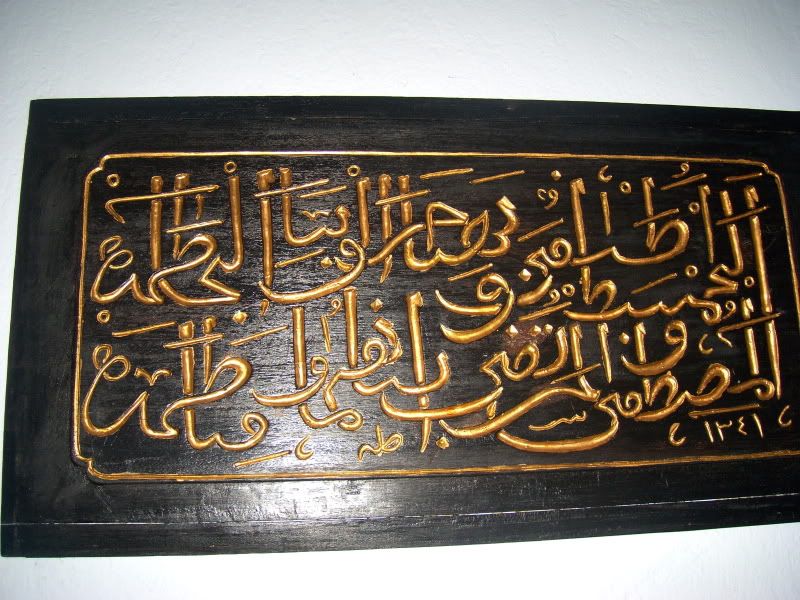 خمسة اطفي الوباء الحاطمة
المصطفى والمرتضى وابناهما وفاطمة
١٣٤١